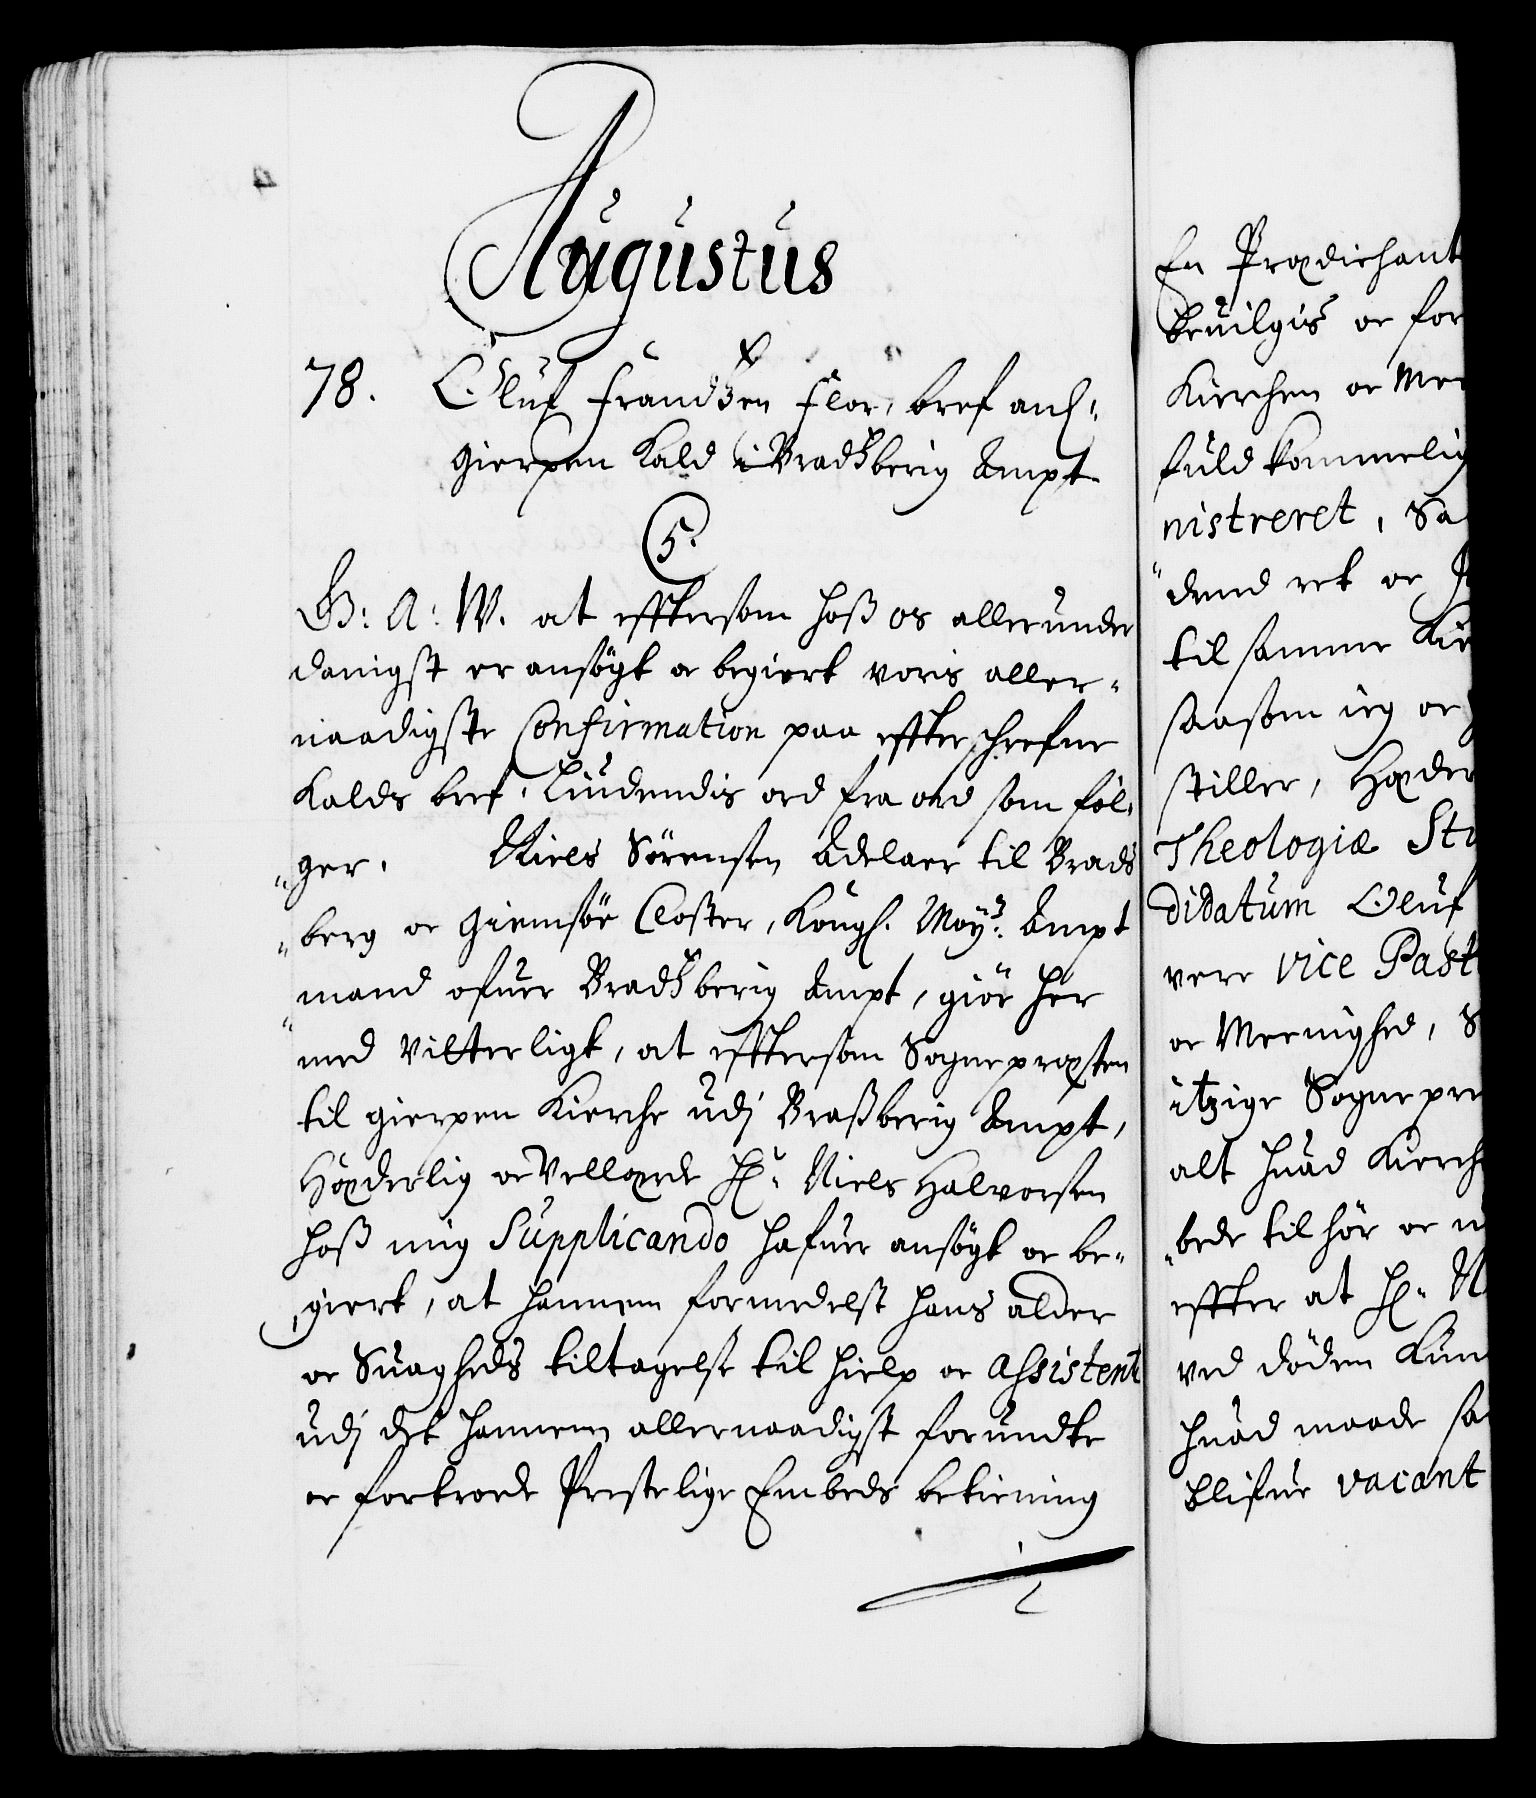 Augustus
78. Oluf Frandßen Flor, bref anl:
Gierpen Kald i Bradßberig Ampt
5.
G: A: W. at efftersom hoß os allerunder
danigst er ansögt oc begiert voris aller-
naadigste Confirmation paa effterschrefne
Kalds bref, Liudendis ord fra ord som föl-
ger. Niels Sörensen Adelaer til Brads
berg oc Giemsöe Closter, Kongl. May:s Ampt
mand ofuer Bradßberig Ampt, giör her
med vitterligt, at efftersom Sognepræsten
til Gierpen Kierche udj Braßberig Ampt,
Höyderlig oc Vellærde Hr: Niels Halvorsen
hoß mig Supplicando hafuer ansögt oc be-
giert, at hannem formedelst hans alder
oc Suagheds tiltagelse til hielp oc Assistentz
udj det hannem allernaadigst forundte
oc fortroede Prestelige Embeds betiening
En Prædichant
beuilgis oc for
Kierchen oc Me
fuld kommelig
nistreret, Sa
dend ret oc J
til samme Kir
saasom ieg oc
stiller, Hæder
Theologiæ Stu
didatum Oluf
vere vice Past
oc Meenighed, S
itzige Sognepre
alt huad Kierch
bede til hör oc
effter at Hr: N
ved döden Kun
huad maade sa
blifue vacant